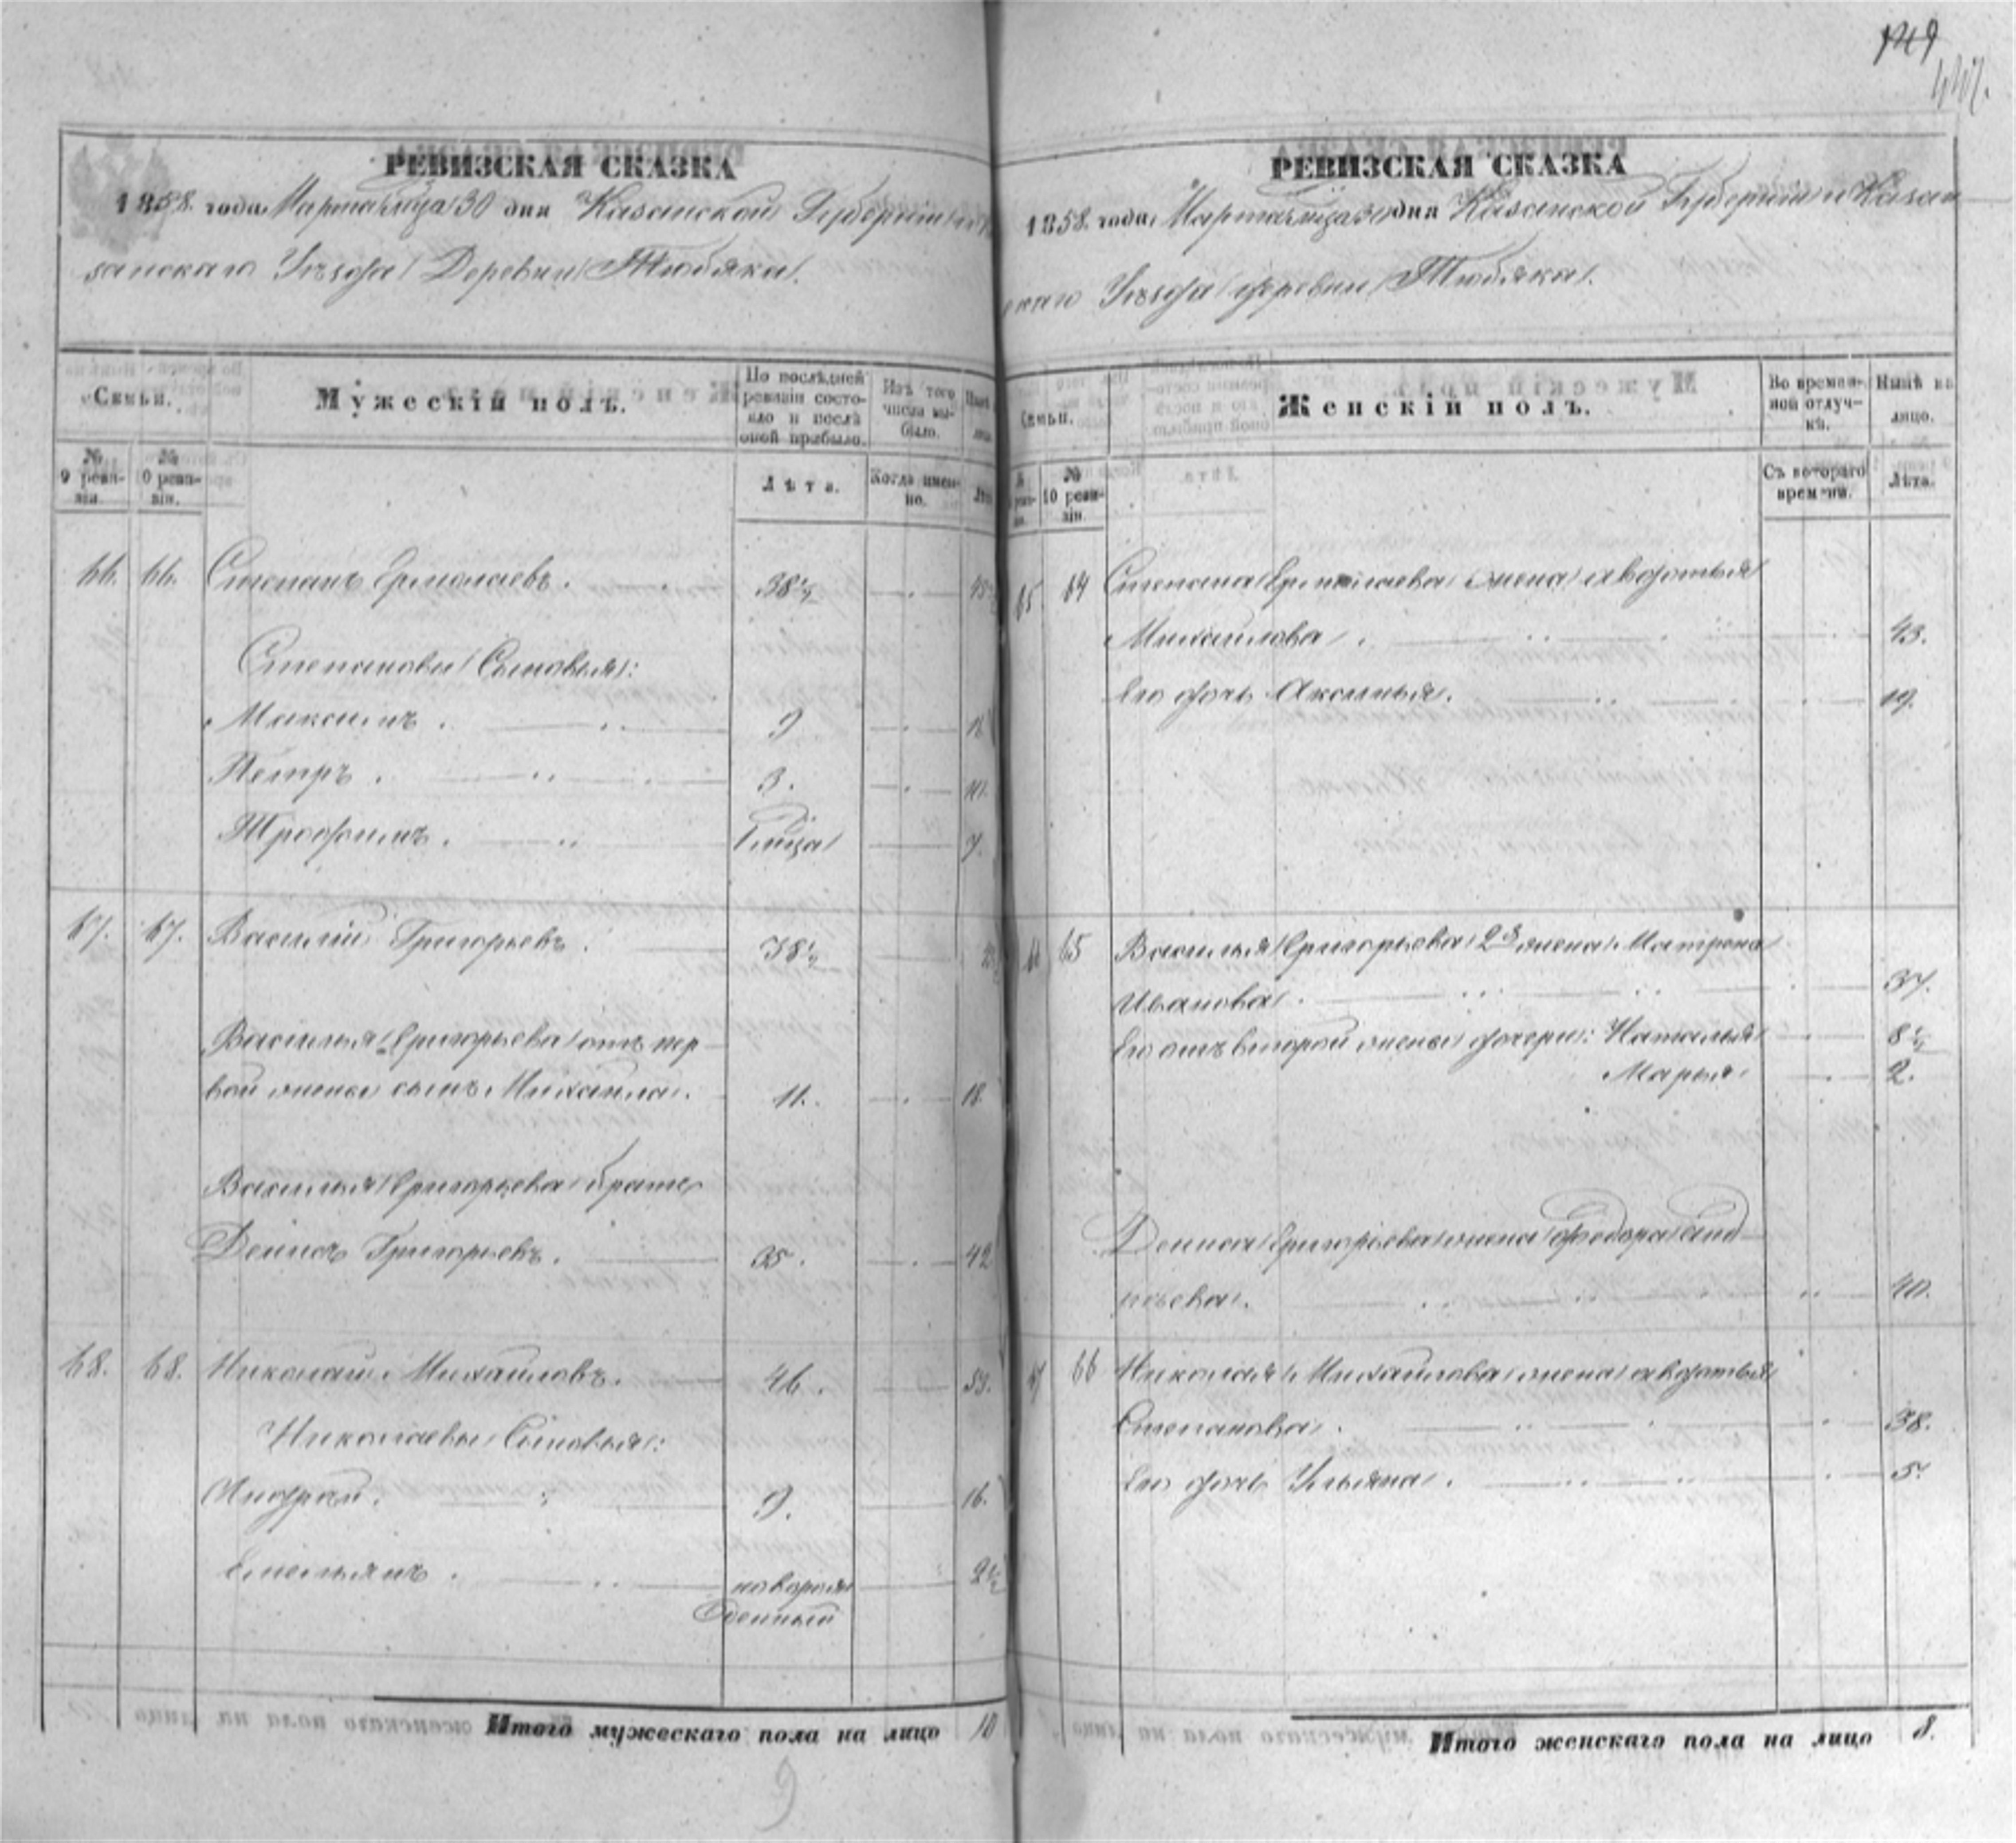 149
РЕВИЗСКАЯ СКАЗКА
1858 года Марта мца 30 дня Казанской Губернии и Ка
занскаго Уѣзда Деревни Тюбяка.
Семьи.
Мужескій полъ.
По послѣдней ревизіи состояло и послѣ оной прибыло.
Изъ того числа выбыло.
№ 9 ревизіи.
№ 10 ревизіи.
Лѣта.
Когда именно.
66. 66. Степанъ Ермолаевъ. 38½
Степановы Сыновья:
Максимъ. 9
Петръ. 3. 10.
Трофимъ. 1 мца 7.
67. 67. Василій Григорьевъ. 38½
Василья Григорьева отъ пер
вой жены сынъ Михайла. 11. 18
Василья Григорьева братъ
Денисъ Григорьевъ. 35. 42
68. 68. Николай Михайловъ. 46. 53.
Николаевы Сыновья:
Андрей. 9. 16.
Емельянъ. новорож
денный
Итого мужескаго пола на лицо 10
9
РЕВИЗСКАЯ СКАЗКА
1858 года Марта мца 30 дня Казанской Губерніи и Казан
скаго Уѣзда деревни Тюбяка.
Семьи.
Женскій полъ.
Во временной отлучкѣ.
Нынѣ на лицо.
№ 10 ревизіи.
Съ котораго времени.
Лѣта.
65. 64 Степана Ермолаева жена Авдотья
Михайлова. 43.
Его дочь Аксинья. 19.
66 65 Василья Григорьева 2я жена Матрена
Иванова. 37.
Его отъ второй жены дочери: Наталья 8½
Марья 2.
Дениса Григорьева жена Федора Анд
реева. 40.
67 66 Николая Михайлова жена Авдотья
Степанова. 38.
Его дочь Ульяна. 5.
Итого женскаго пола на лицо 8.